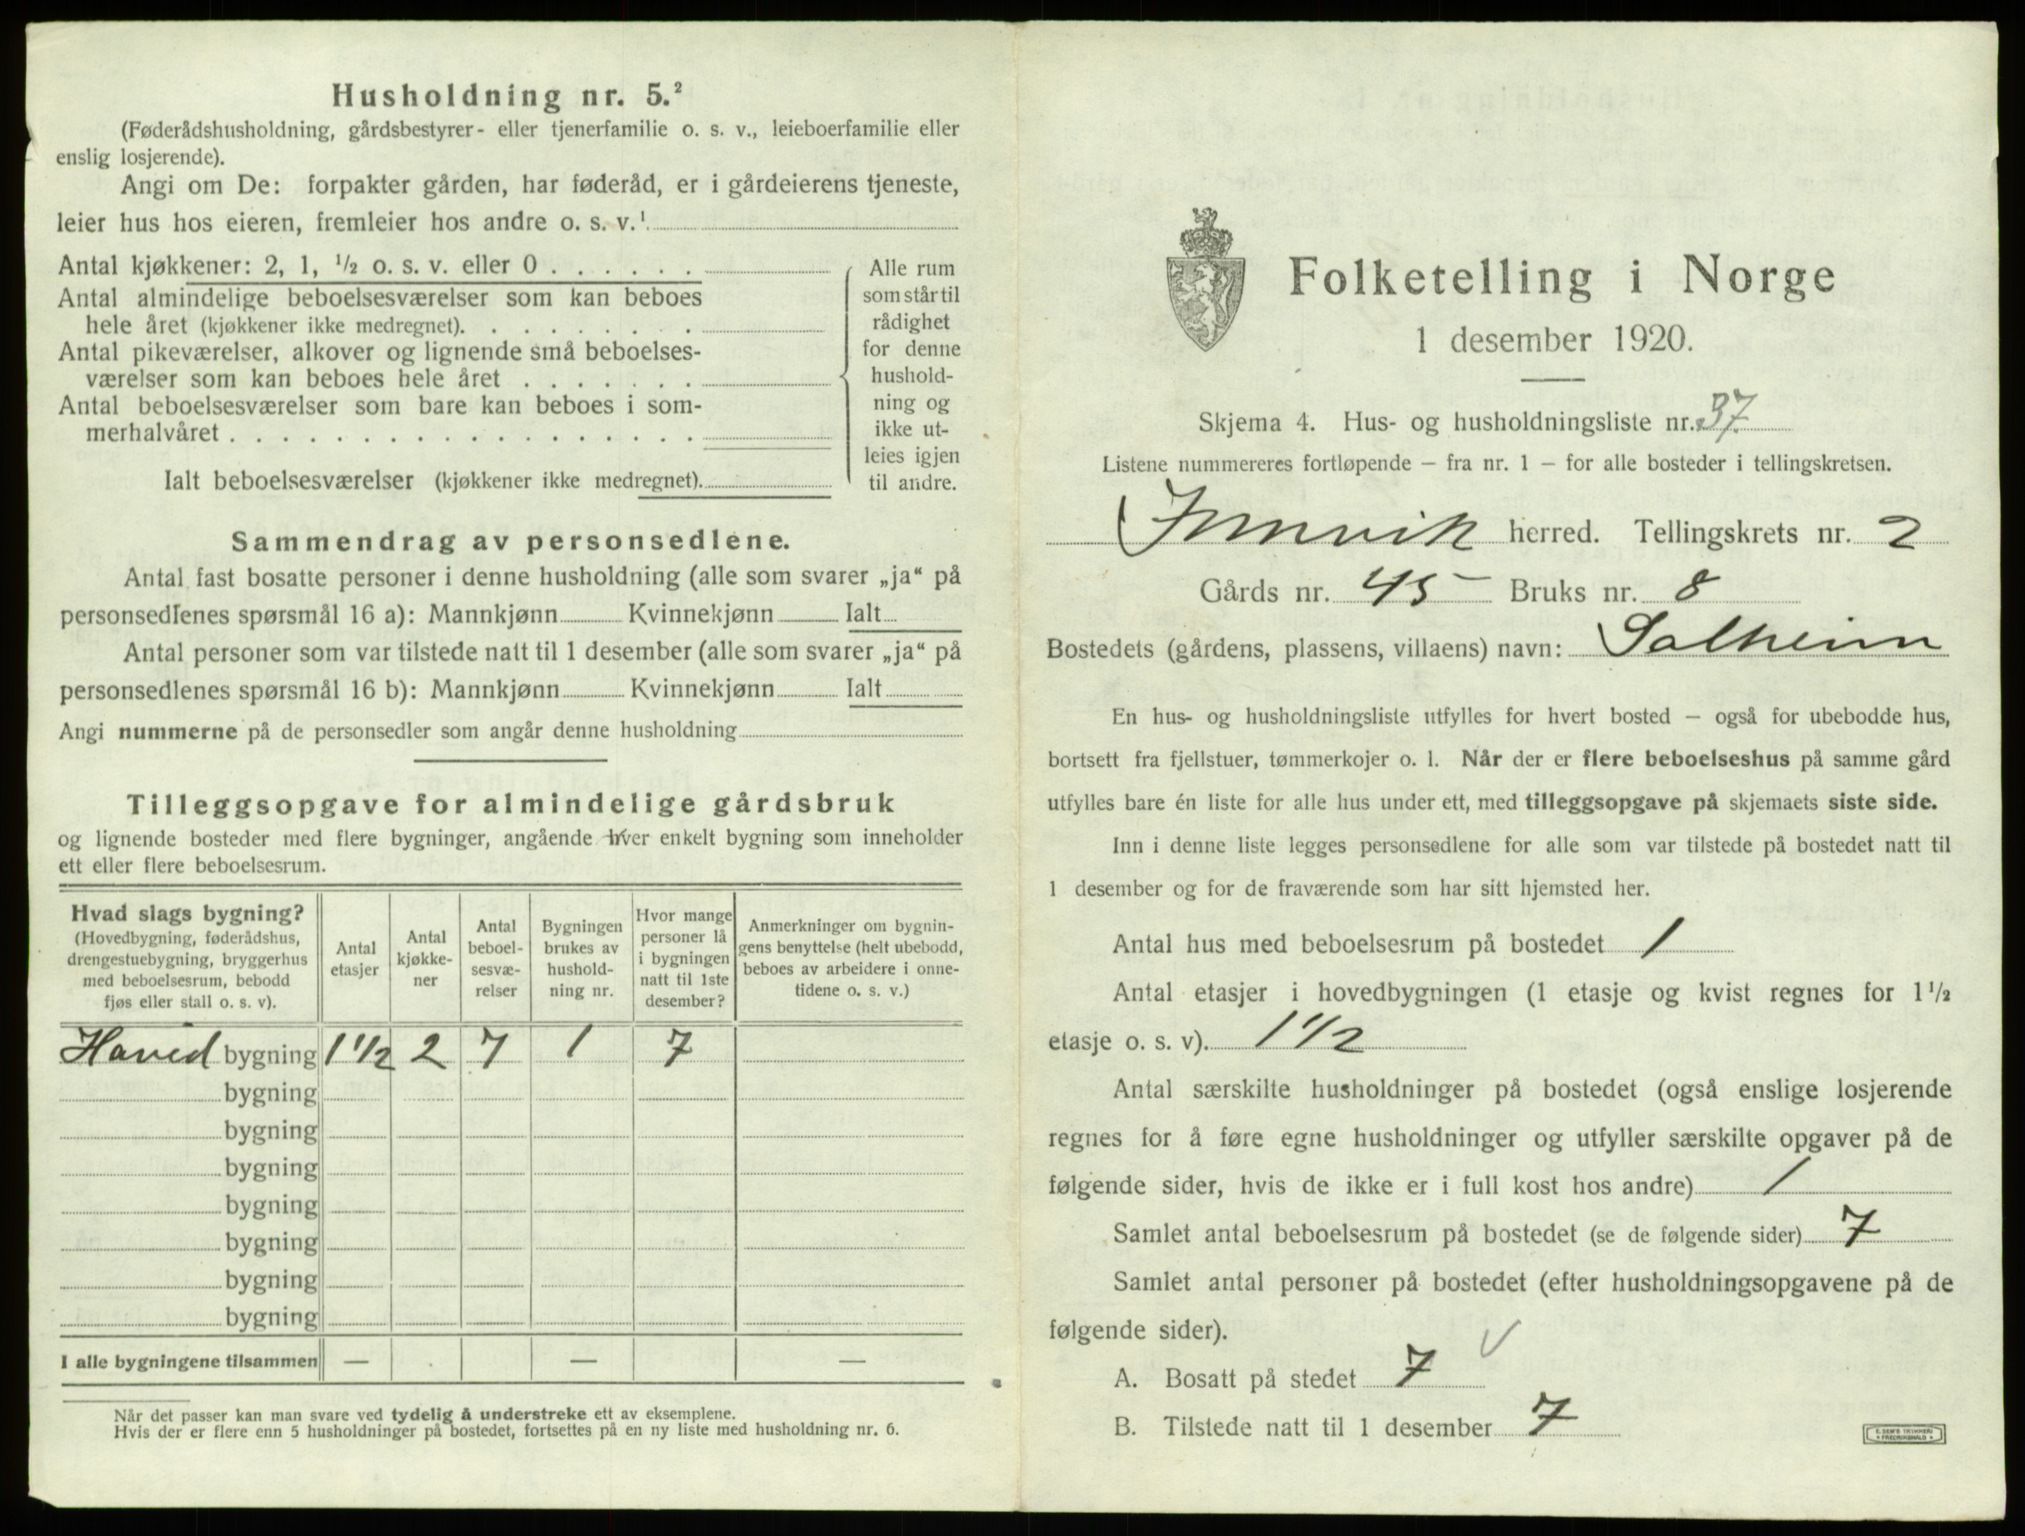 Husholdning nr. 5.²
(Føderådshusholdning, gårdsbestyrer- eller tjenerfamilie o. s. v., leieboerfamilie eller
enslig losjerende).
Angi om De: forpakter gården, har føderåd, er i gårdeierens tjeneste,
leier hus hos eieren, fremleier hos andre o. s. v.¹
Antal kjøkkener: 2, 1, ½ o. s. v. eller 0 . . . . . .
Antal almindelige beboelsesværelser som kan beboes
hele året (kjøkkener ikke medregnet). . . . . . . . .
Antal pikeværelser, alkover og lignende små beboelses-
værelser som kan beboes hele året . . . . . . .
Antal beboelsesværelser som bare kan beboes i som-
merhalvåret . . . . . . . . . . . . . . . . . .
Ialt beboelsesværelser (kjøkkener ikke medregnet).
Alle rum
som står til
rådighet
for denne
hushold-
ning og
ikke ut-
leies igjen
til andre.
Sammendrag av personsedlene.
Antal fast bosatte personer i denne husholdning (alle som svarer „ja“ på
personsedlenes spørsmål 16 a): Mannkjønn Kvinnekjønn Ialt
Antal personer som var tilstede natt til 1 desember (alle som svarer „ja“ på
personsedlenes spørsmål 16 b): Mannkjønn Kvinnekjønn Ialt
Angi nummerne på de personsedler som angår denne husholdning
Tilleggsopgave for almindelige gårdsbruk
og lignende bosteder med flere bygninger, angående hver enkelt bygning som inneholder
ett eller flere beboelsesrum.
Hvad slags bygning?
(Hovedbygning, føderådshus,
drengestuebygning, bryggerhus
med beboelsesrum, bebodd
fjøs eller stall o. s. v).
Antal
etasjer
Antal
kjøkke-
ner
Antal
beboel-
sesvæ-
relser
Bygningen
brukes av
hushold-
ning nr.
Hvor mange
personer lå
i bygningen
natt til 1ste
desember?
Anmerkninger om bygnin-
gens benyttelse (helt ubebodd,
beboes av arbeidere i onne-
tidene o. s. v.)
Hovedbygning 1 1/2 2 7 1 7
bygning
bygning
bygning
bygning
bygning
bygning
bygning
I alle bygningene tilsammen — . — —
Når det passer kan man svare ved tydelig å understreke ett av eksemplene.
Hvis der er flere enn 5 husholdninger på bostedet, fortsettes på en ny liste med husholdning nr. 6.
Folketelling i Norge
1 desember 1920.
Skjema 4. Hus- og husholdningsliste nr. 37.
Listene nummereres fortløpende — fra nr. 1 — for alle bosteder i tellingskretsen.
Innvik herred. Tellingskrets nr. 2
Gårds nr. 45 Bruks nr. 8
Bostedets (gårdens, plassens, villaens) navn: Solheim
En hus- og husholdningsliste utfylles for hvert bosted — også for ubebodde hus,
bortsett fra fjellstuer, tømmerkojer o. l. Når der er flere beboelseshus på samme gård
utfylles bare én liste for alle hus under ett, med tilleggsopgave på skjemaets siste side.
Inn i denne liste legges personsedlene for alle som var tilstede på bostedet natt til
1 desember og for de fraværende som har sitt hjemsted her.
Antal hus med beboelsesrum på bostedet 1
Antal etasjer i hovedbygningen (1 etasje og kvist regnes for 1½
etasje o. s. v). 1 1/2
Antal særskilte husholdninger på bostedet (også enslige losjerende
regnes for å føre egne husholdninger og utfyller særskilte opgaver på de
følgende sider, hvis de ikke er i full kost hos andre) 1
Samlet antal beboelsesrum på bostedet (se de følgende sider) 7
Samlet antal personer på bostedet (efter husholdningsopgavene på de
følgende sider).
A. Bosatt på stedet 7
B. Tilstede natt til 1 desember 7
E. SEM'S TRYKKERI
FREDRIKSHALD